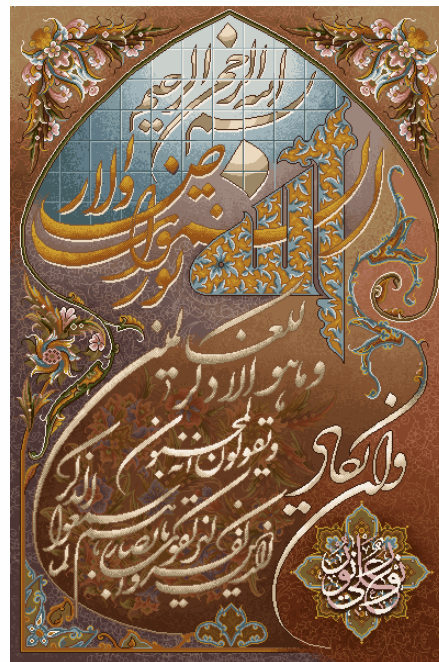 بسم الله الرحمن الرحيم
الله نور السموات والارض
وان يكاد
الذين كفروا ليزلقونك بابصارهم لما سمعوا الذكر
ويقولون انه لمجنون
وما هو الا ذكر للعالمين
نور على نور